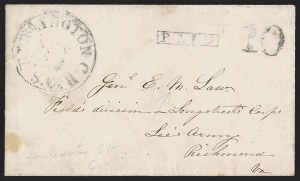 DARLINGTON C.H.
S.C.
PAID
10
Genl E. M. Law
Fields division - Longstreets Corps
Lee's Army
Richmond
Va
Darlington CH